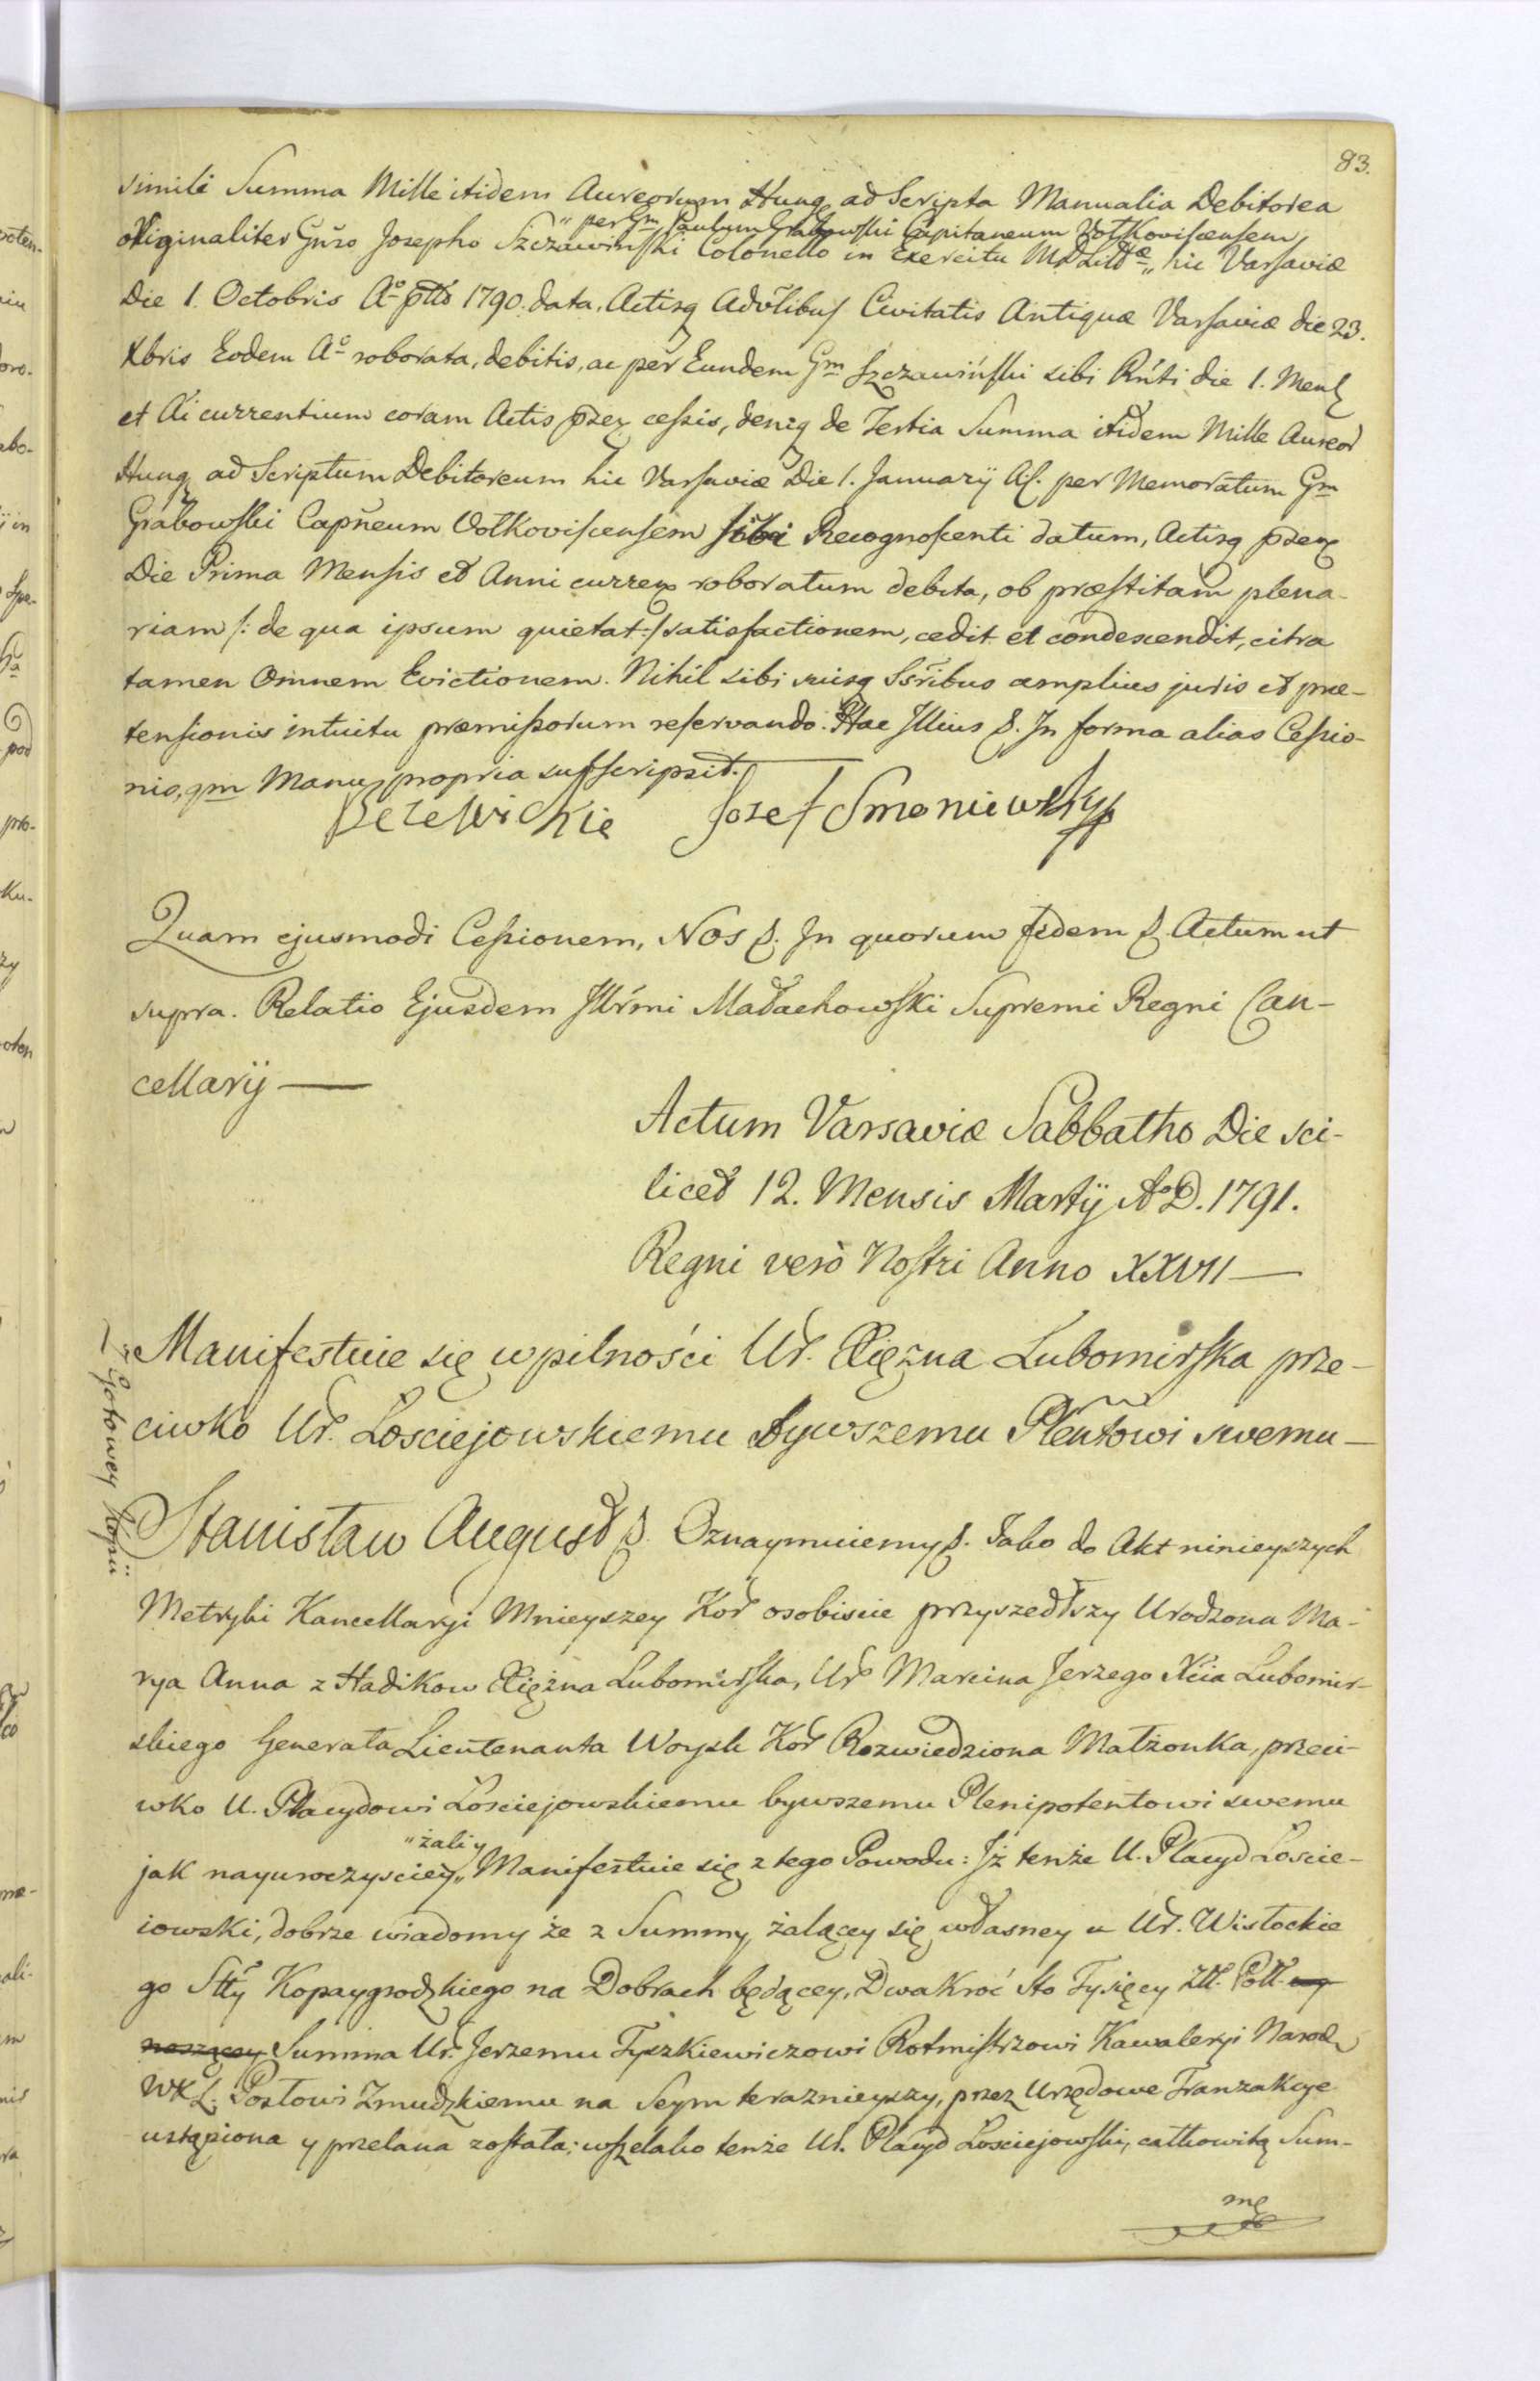 83.
simili Summa Mille itidem Aureorum Hung. ad Scripta Manualia Debitorea
" per Gm Paulum Grabowski Capitaneum Wołkoviscensem
originaliter Gnso Josepho Szczawinski Colonello in Exercitu MDLittæ „ hic Varsaviæ
Die 1. Octobris Ao ptto 1790. data, Actisq Advlibus Civitatis Antiquæ Varsaviæ die 23.
Xbris Eodem Ao roborata, debitis, ac per Eundem Gm Szczawiński sibi Rnti die 1. Mens
et Ai currentium coram Actis psez cessis, deniq de Tertia Summa itidem Mille Aureor
Hung ad Scriptum Debitoreum hic Varsaviæ Die 1. January A. per Memoratum Gm
Grabowski Capneum Volkoviscensem sibi Recognoscenti datum, Actisq psen
Die Prima Mensis et Anni curren roboratum debita, ob præstitam plena-
riam /: de qua ipsum quietat :/ satisfactionem, cedit et condescendit, citra
tamen Omnem Evictionem. Nihil sibi suisq Ssribus amplius juris et præ-
tensionis intuitu præmissorum reservando. Hac Illius &. In forma alias Cessio-
nis, qm Manu propria subscripsit. —
Józef Smoniewski
Quam ejusmodi Cessionem, Nos &. In quorum fidem &. Actum ut
supra. Relatio Ejusdem Illrmi Małachowski Supremi Regni Can-
cellarij —
Actum Varsaviæ Sabbatho Die sci-
licet 12. Mensis Martij A°D. 1791.
Regni verò Nostri Anno XXVII —
Manifestuie się w pilności Ur. Xiężna Lubomirska prze-
ciwko Ur. Łosciejowskiemu bywszemu Plentowi swemu —
z Gotowey Kopii
Stanisław August &. Oznaymuiemy &. Iako do Akt ninieyszych
Metryki Kancellaryi Mnieyszey Kor osobiscie przyszedłszy Urodzona Ma-
rya Anna z Hadikow Xiężna Lubomirska, Ur Marcina Jerzego Xcia Lubomir-
skiego Generała Lieutenanta Woysk Kor Rozwiedziona Małżonka, przeci-
wko U. Placydowi Łosciejowskiemu bywszemu Plenipotentowi swemu
" żali y
jak nayuroczysciey „ Manifestuie się z tego Powodu: Iż tenże U. Placyd Łoscie-
iowski, dobrze wiadomy że z Summy żalącey się własney u Ur. Wisłockie
go Stty Kopaygrodzkiego na Dobrach będącey, Dwakroć Sto Tysięcy Złł. Poll. wy
noszącey Summa Ur. Jerzemu Tyszkiewiczowi Rotmistrzowi Kawaleryi Narod
WXL. Posłowi Zmudzkiemu na Seym teraznieyszy, przez Urzędowe Tranzakcye
ustąpiona y przelana została; wszelako tenże Ur. Placyd Łosciejowski, całkowitą Sum-
mę